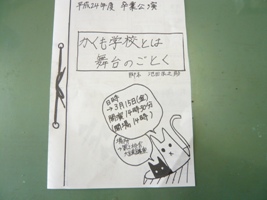 平成24年度 卒業公演
かくも学校とは
舞台のごとく
日時
→3月15日(金)
開演14時30分
(開場14時)
場所